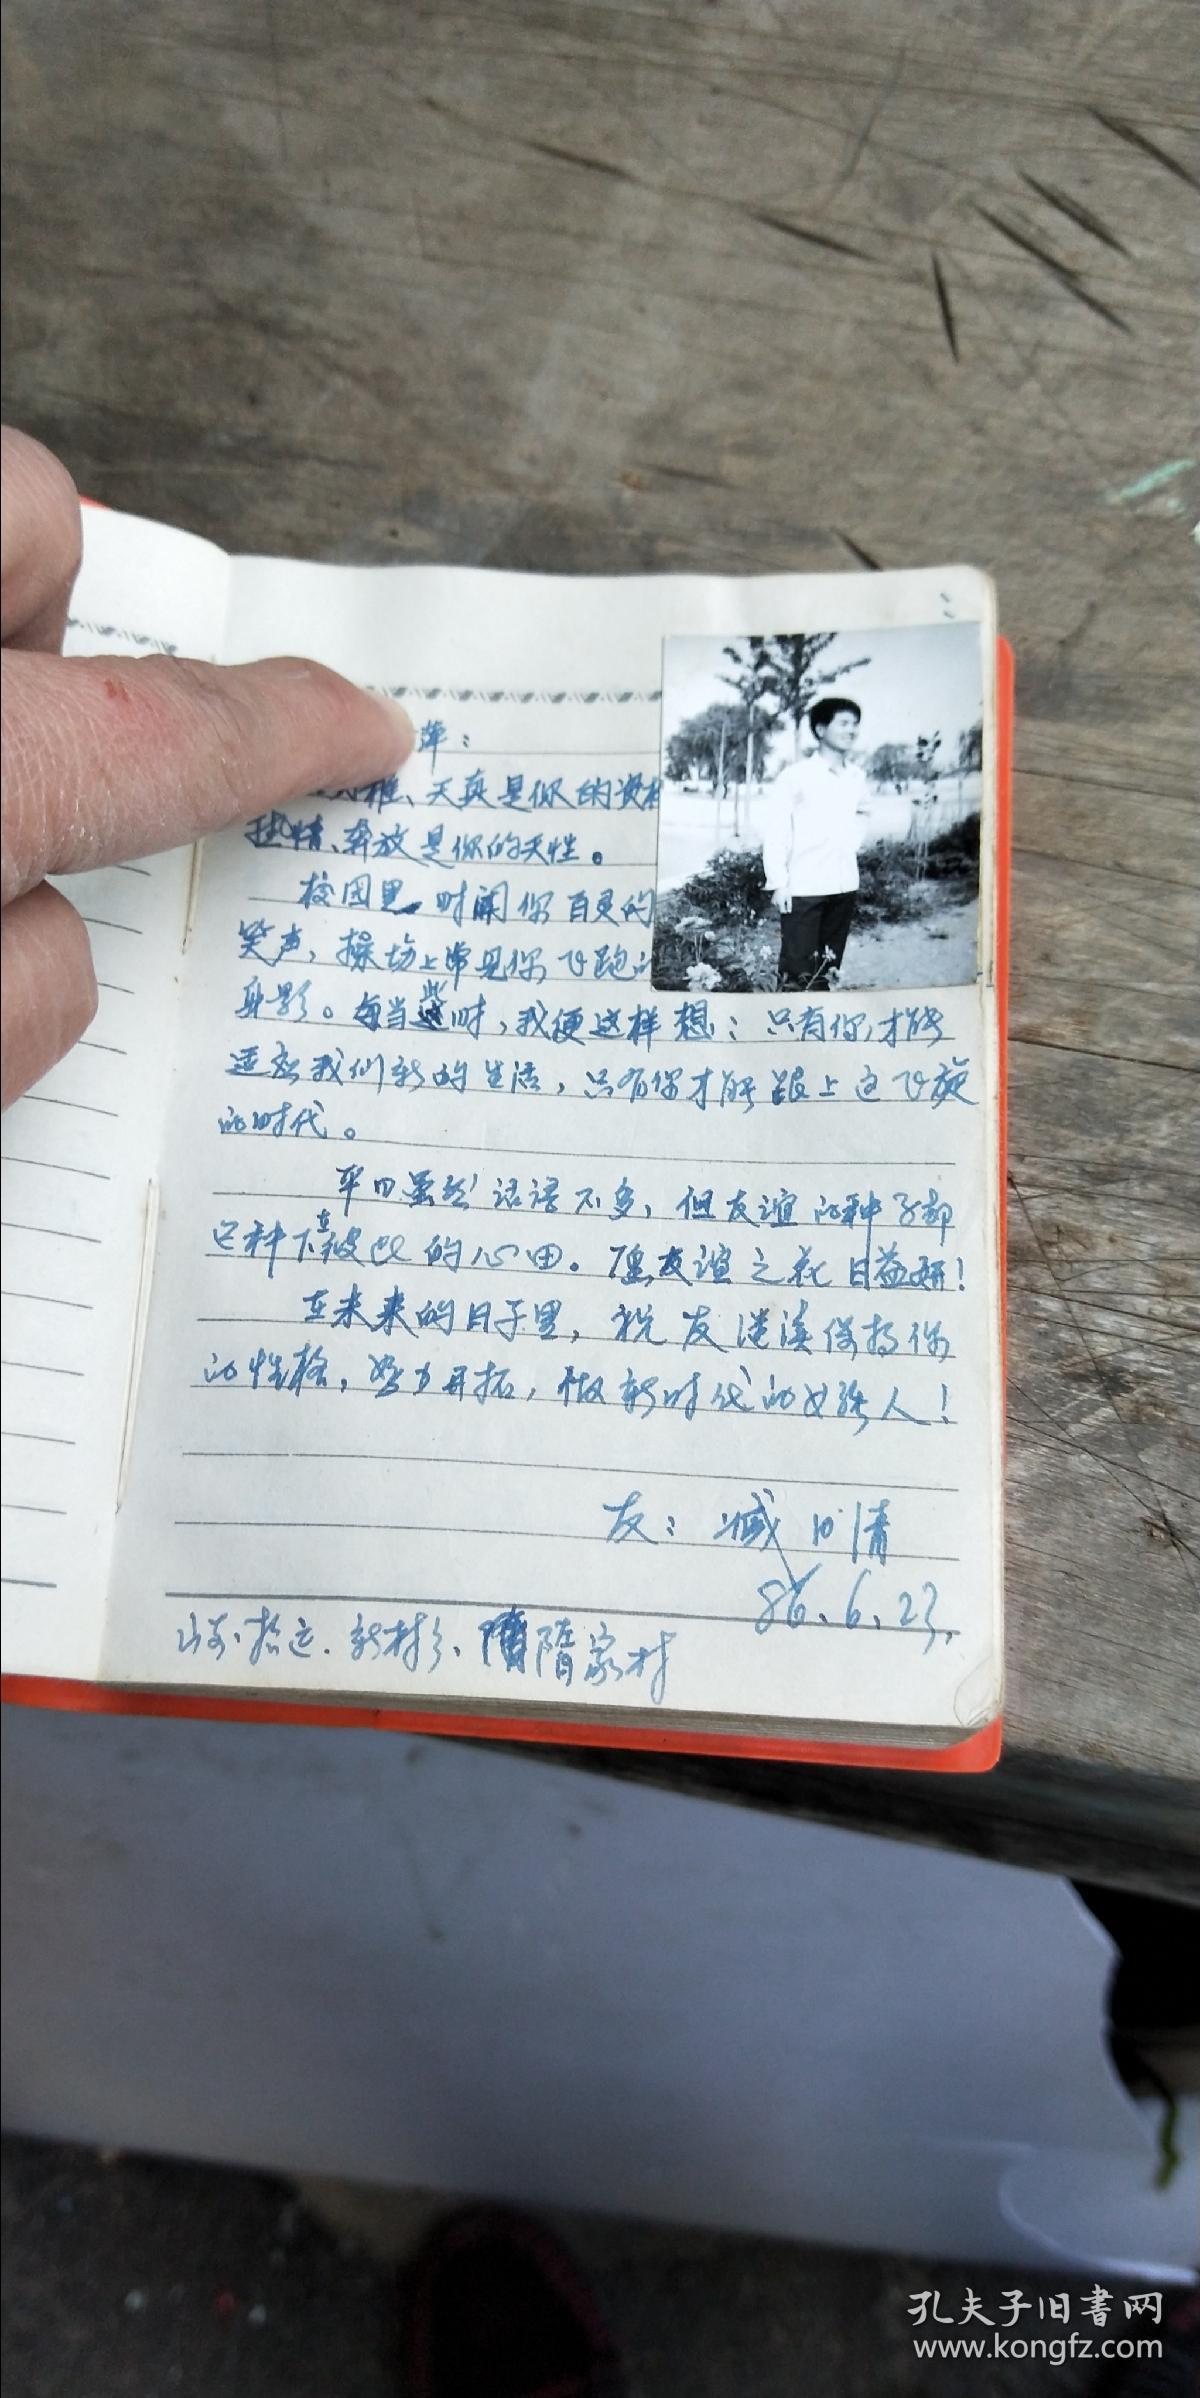 萍：
雅、天真是你的资
热情、奔放是你的天性。
校园里时闻你百灵的
笑声，操场上常见你飞跑的
身影。每当此时，我便这样想：只有你，才能
适应我们新的生活，只有你才能跟上这飞旋
的时代。
平日虽然话语不多，但友谊的种子却
已种下在彼此的心田。愿友谊之花日益妍！
在未来的日子里，祝友继续保持你
的性格，努力开拓，做新时代的女强人！
友：臧
86.6.23.
山东.招远.新村乡、隋家村
孔夫子旧书网
www.kongfz.com